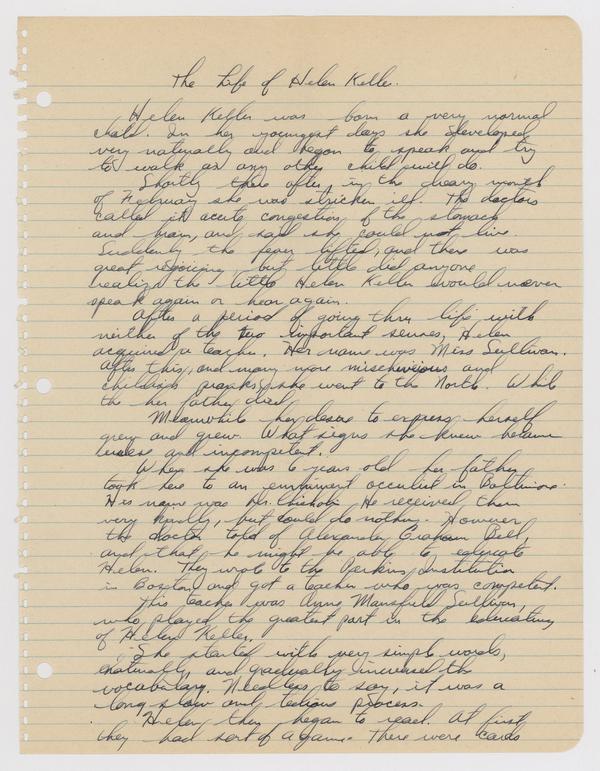 The Life of Helen Keller.
Helen Keller was born a very normal
child. In her youngest days she developed
very naturally and began to speak and try
to walk as any other child will do.
Shortly there after, in the dreary month
of February she was stricken ill. The doctors
called it acute congestion of the stomach
and brain, and said she could not live.
Suddenly the fever lifted, and there was
great rejoicing, but little did anyone
realize the little Helen Keller would never
speak again or hear again.
After a period of going thru life with
neither of the two important senses, Helen
acquired a teacher. Her name was Miss Sullivan.
After this, and many more mischevious and
childish pranks, she went to the North. While
the her father died.
Meanwhile her desire to express herself
grew and grew. What signs she knew became
useless and incompetent.
When she was 6 years old her father
took here to an emminent occulist in Baltimore.
His name was Dr. Chisholm. He received them
very kindly, but could do nothing. However
the doctor told of Alexander Graham Bell,
and that he might be able to educate
Helen. They wrote to the Perkins Institution
in Boston and got a teacher who was competent.
This teacher was Anne Mansfield Sullivan,
who played the greatest part in the educating
of Helen Keller.
She started with very simple words,
naturally, and gradually increased the
vocabulary. Needless to say, it was a
long slow and tedious process.
Helen then began to read. At first
they had sort of a game. There were cards